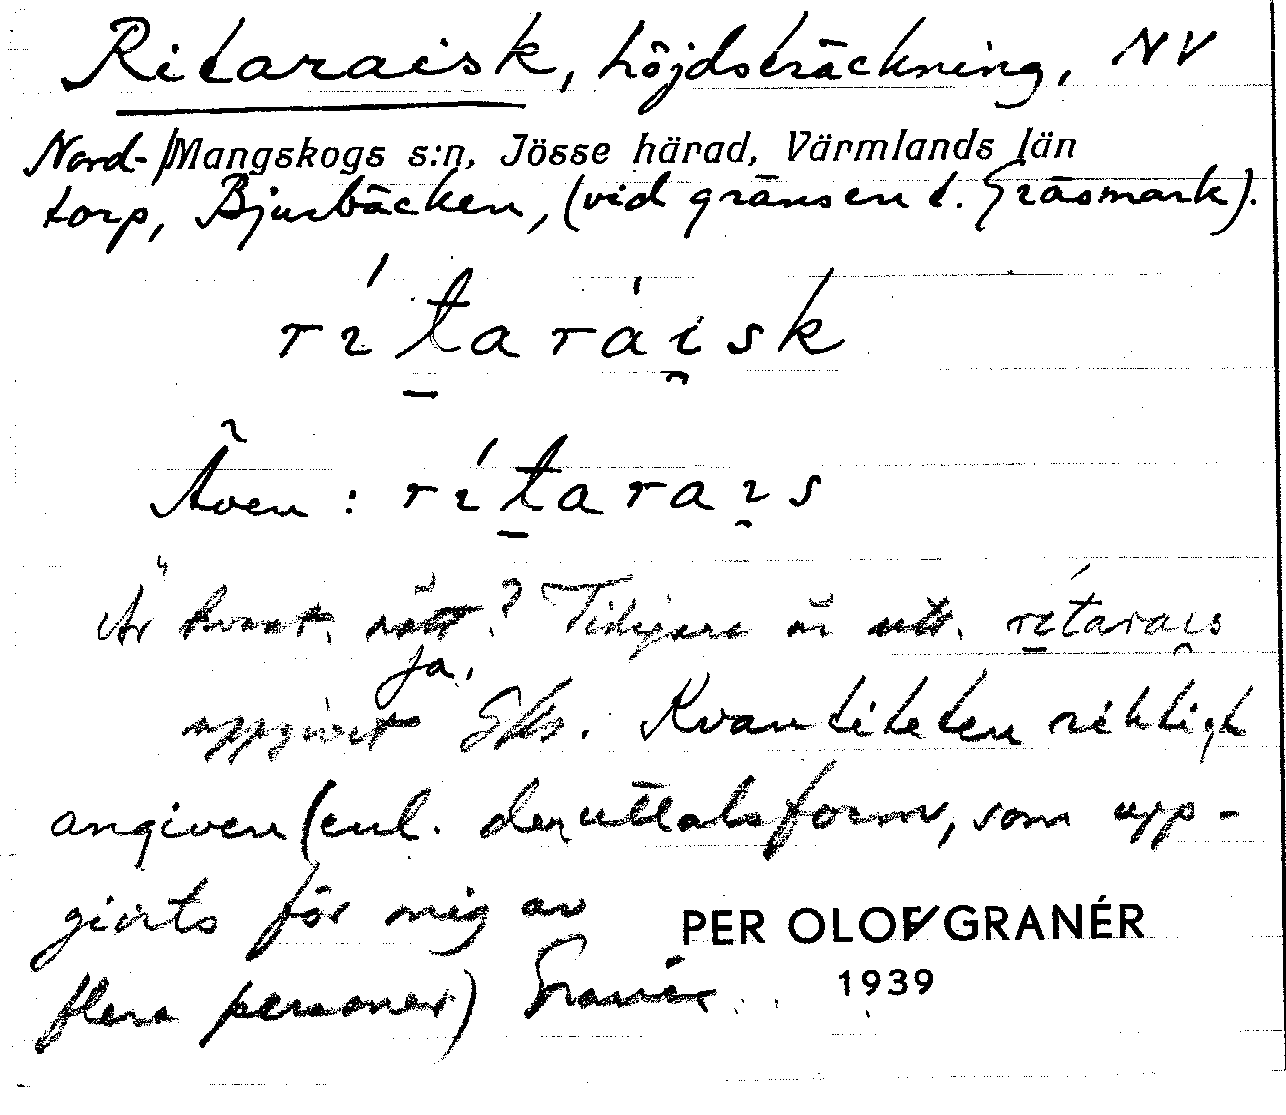 Ritaraisk, höjdsträckning, NV
Nord-/Mangskogs s:n, Jösse härad, Värmlands län
torp, Bjurbäcken, (vid gränsen t. Gräsmark).
rítaráisk
Även: rítarais
Är kvant. rätt? Tidigare är utt. rítarais
ja.
uppgivet Sts. Kvantiteten riktigt
angiven (enl. den uttalsform, som upp-
givits för mig av
flera personer) Granér
PER OLOF GRANÉR
1939